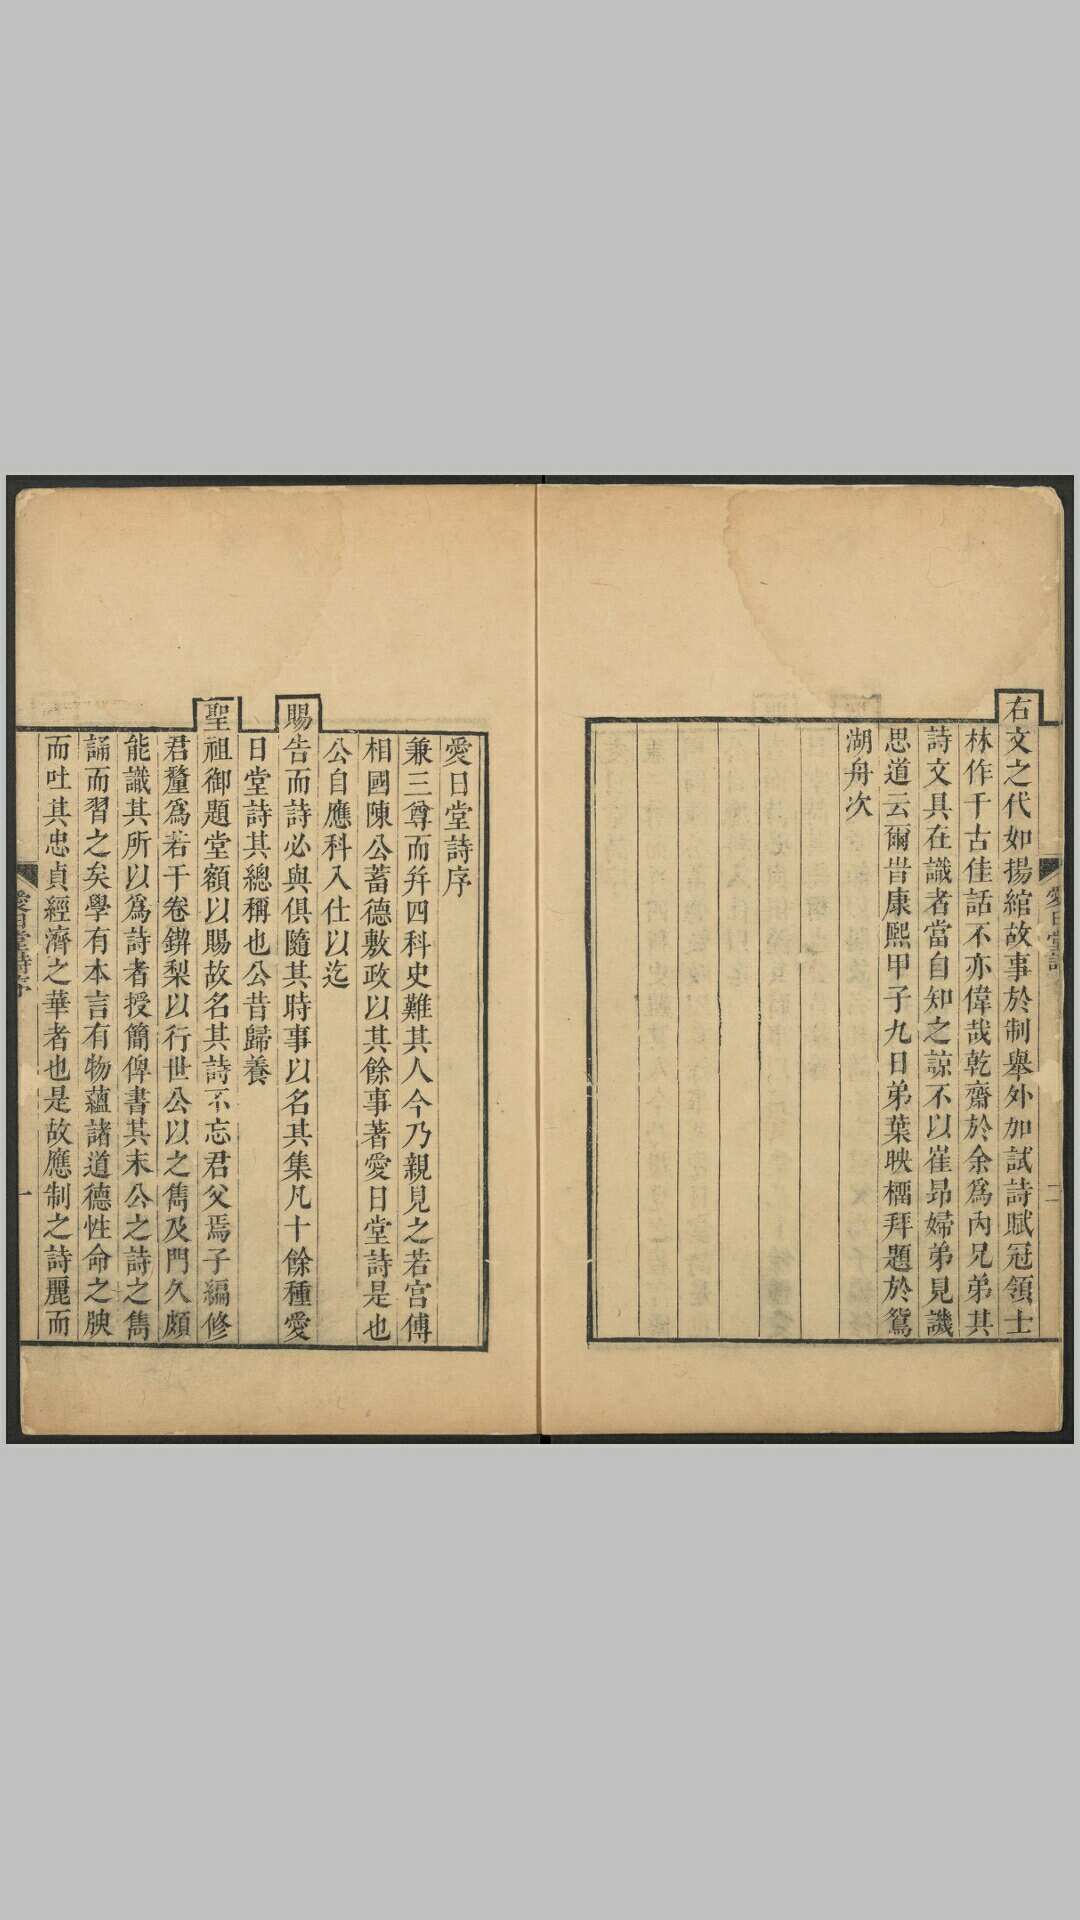 右文之代如揚綰故事於制舉外加試詩賦冠領士
林作千古佳話不亦偉哉乾齋於余爲內兄弟其
詩文具在識者當自知之諒不以崔昂婦弟見譏
思道云爾昔康熙甲子九日弟葉映榴拜題於鴛
湖舟次
愛日堂詩序
兼三尊而并四科史難其人今乃親見之若宮傅
相國陳公蓄德敷政以其餘事著愛日堂詩是也
公自應科入仕以迄
賜告而詩必與俱隨其時事以名其集凡十餘種愛
日堂詩其總稱也公昔歸養
聖祖御題堂額以賜故名其詩不忘君父焉子編修
君釐爲若干卷鍥梨以行世公以之雋及門久頗
能識其所以爲詩者授簡俾書其末公之詩之雋
誦而習之矣學有本言有物蘊諸道德性命之腴
而吐其忠貞經濟之華者也是故應制之詩麗而
愛日堂詩序
一